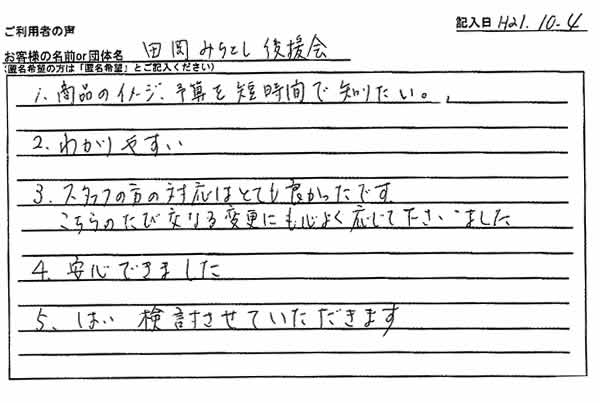 ご利用者の声
記入日 H21.10.4
お客様の名前or団体名 田岡みちとし後援会
(匿名希望の方は「匿名希望」とご記入ください)
1. 商品のイメージ、予算を短時間で知りたい。
2. わかりやすい
3. スタッフの方の対応はとても良かったです。
こちらのたび交なる変更にも心よく応じて下さいました
4. 安心できました
5. はい 検討させていただきます